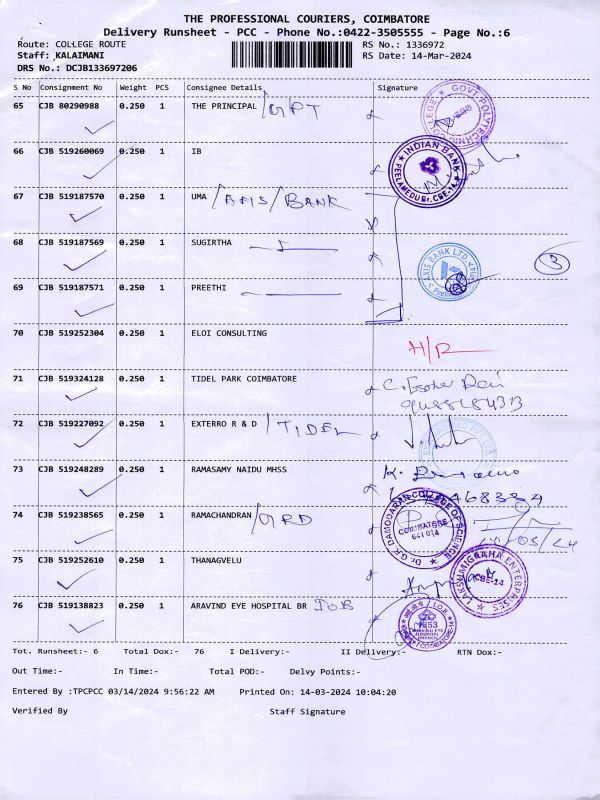 THE PROFESSIONAL COURIERS, COIMBATORE
Delivery Runsheet - PCC - Phone No.:0422-3505555 - Page No.:6
Route: COLLEGE ROUTE
RS No.: 1336972
Staff: KALAIMANI
RS Date: 14-Mar-2024
DRS No.: DCJB133697206
S No Consignment No Weight PCS Consignee Details Signature
65 CJB 80290988 0.250 1 THE PRINCIPAL /GPT
GOVT POLYTECHNIC COLLEGE
66 CJB 519260069 0.250 1 IB
INDIAN BANK
PEELAMEDU Br. CBE-14
67 CJB 519187570 0.250 1 UMA /AXIS/BANK
68 CJB 519187569 0.250 1 SUGIRTHA
AXIS BANK LTD.
3
69 CJB 519187571 0.250 1 PREETHI
70 CJB 519252304 0.250 1 ELOI CONSULTING
H/R
71 CJB 519324128 0.250 1 TIDEL PARK COIMBATORE
72 CJB 519227092 0.250 1 EXTERRO R & D /TIDEL
73 CJB 519248289 0.250 1 RAMASAMY NAIDU MHSS
K.
74 CJB 519238565 0.250 1 RAMACHANDRAN /GRD
Dr. G.R. DAMODARAN COLLEGE OF SCIENCE
COIMBATORE
641 014
75 CJB 519252610 0.250 1 THANAGVELU
LAKSHMI GRAHA ENTERPRISES
CBE-14
76 CJB 519138823 0.250 1 ARAVIND EYE HOSPITAL BR IOB
I.O.B
1853
ARAVIND EYE
HOSPITAL
COIMBATORE-14
Tot. Runsheet:- 6 Total Dox:- 76 I Delivery:- II Delivery:- RTN Dox:-
Out Time:- In Time:- Total POD:- Delvy Points:-
Entered By :TPCPCC 03/14/2024 9:56:22 AM Printed On: 14-03-2024 10:04:20
Verified By Staff Signature